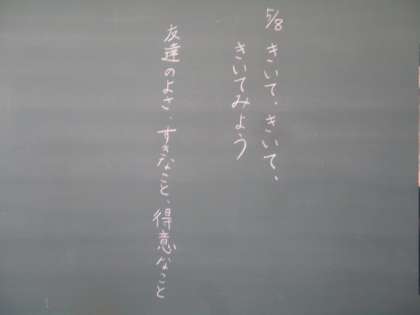 5/8 きいて、きいて、
きいてみよう
友達のよさ、すきなこと、得意なこと